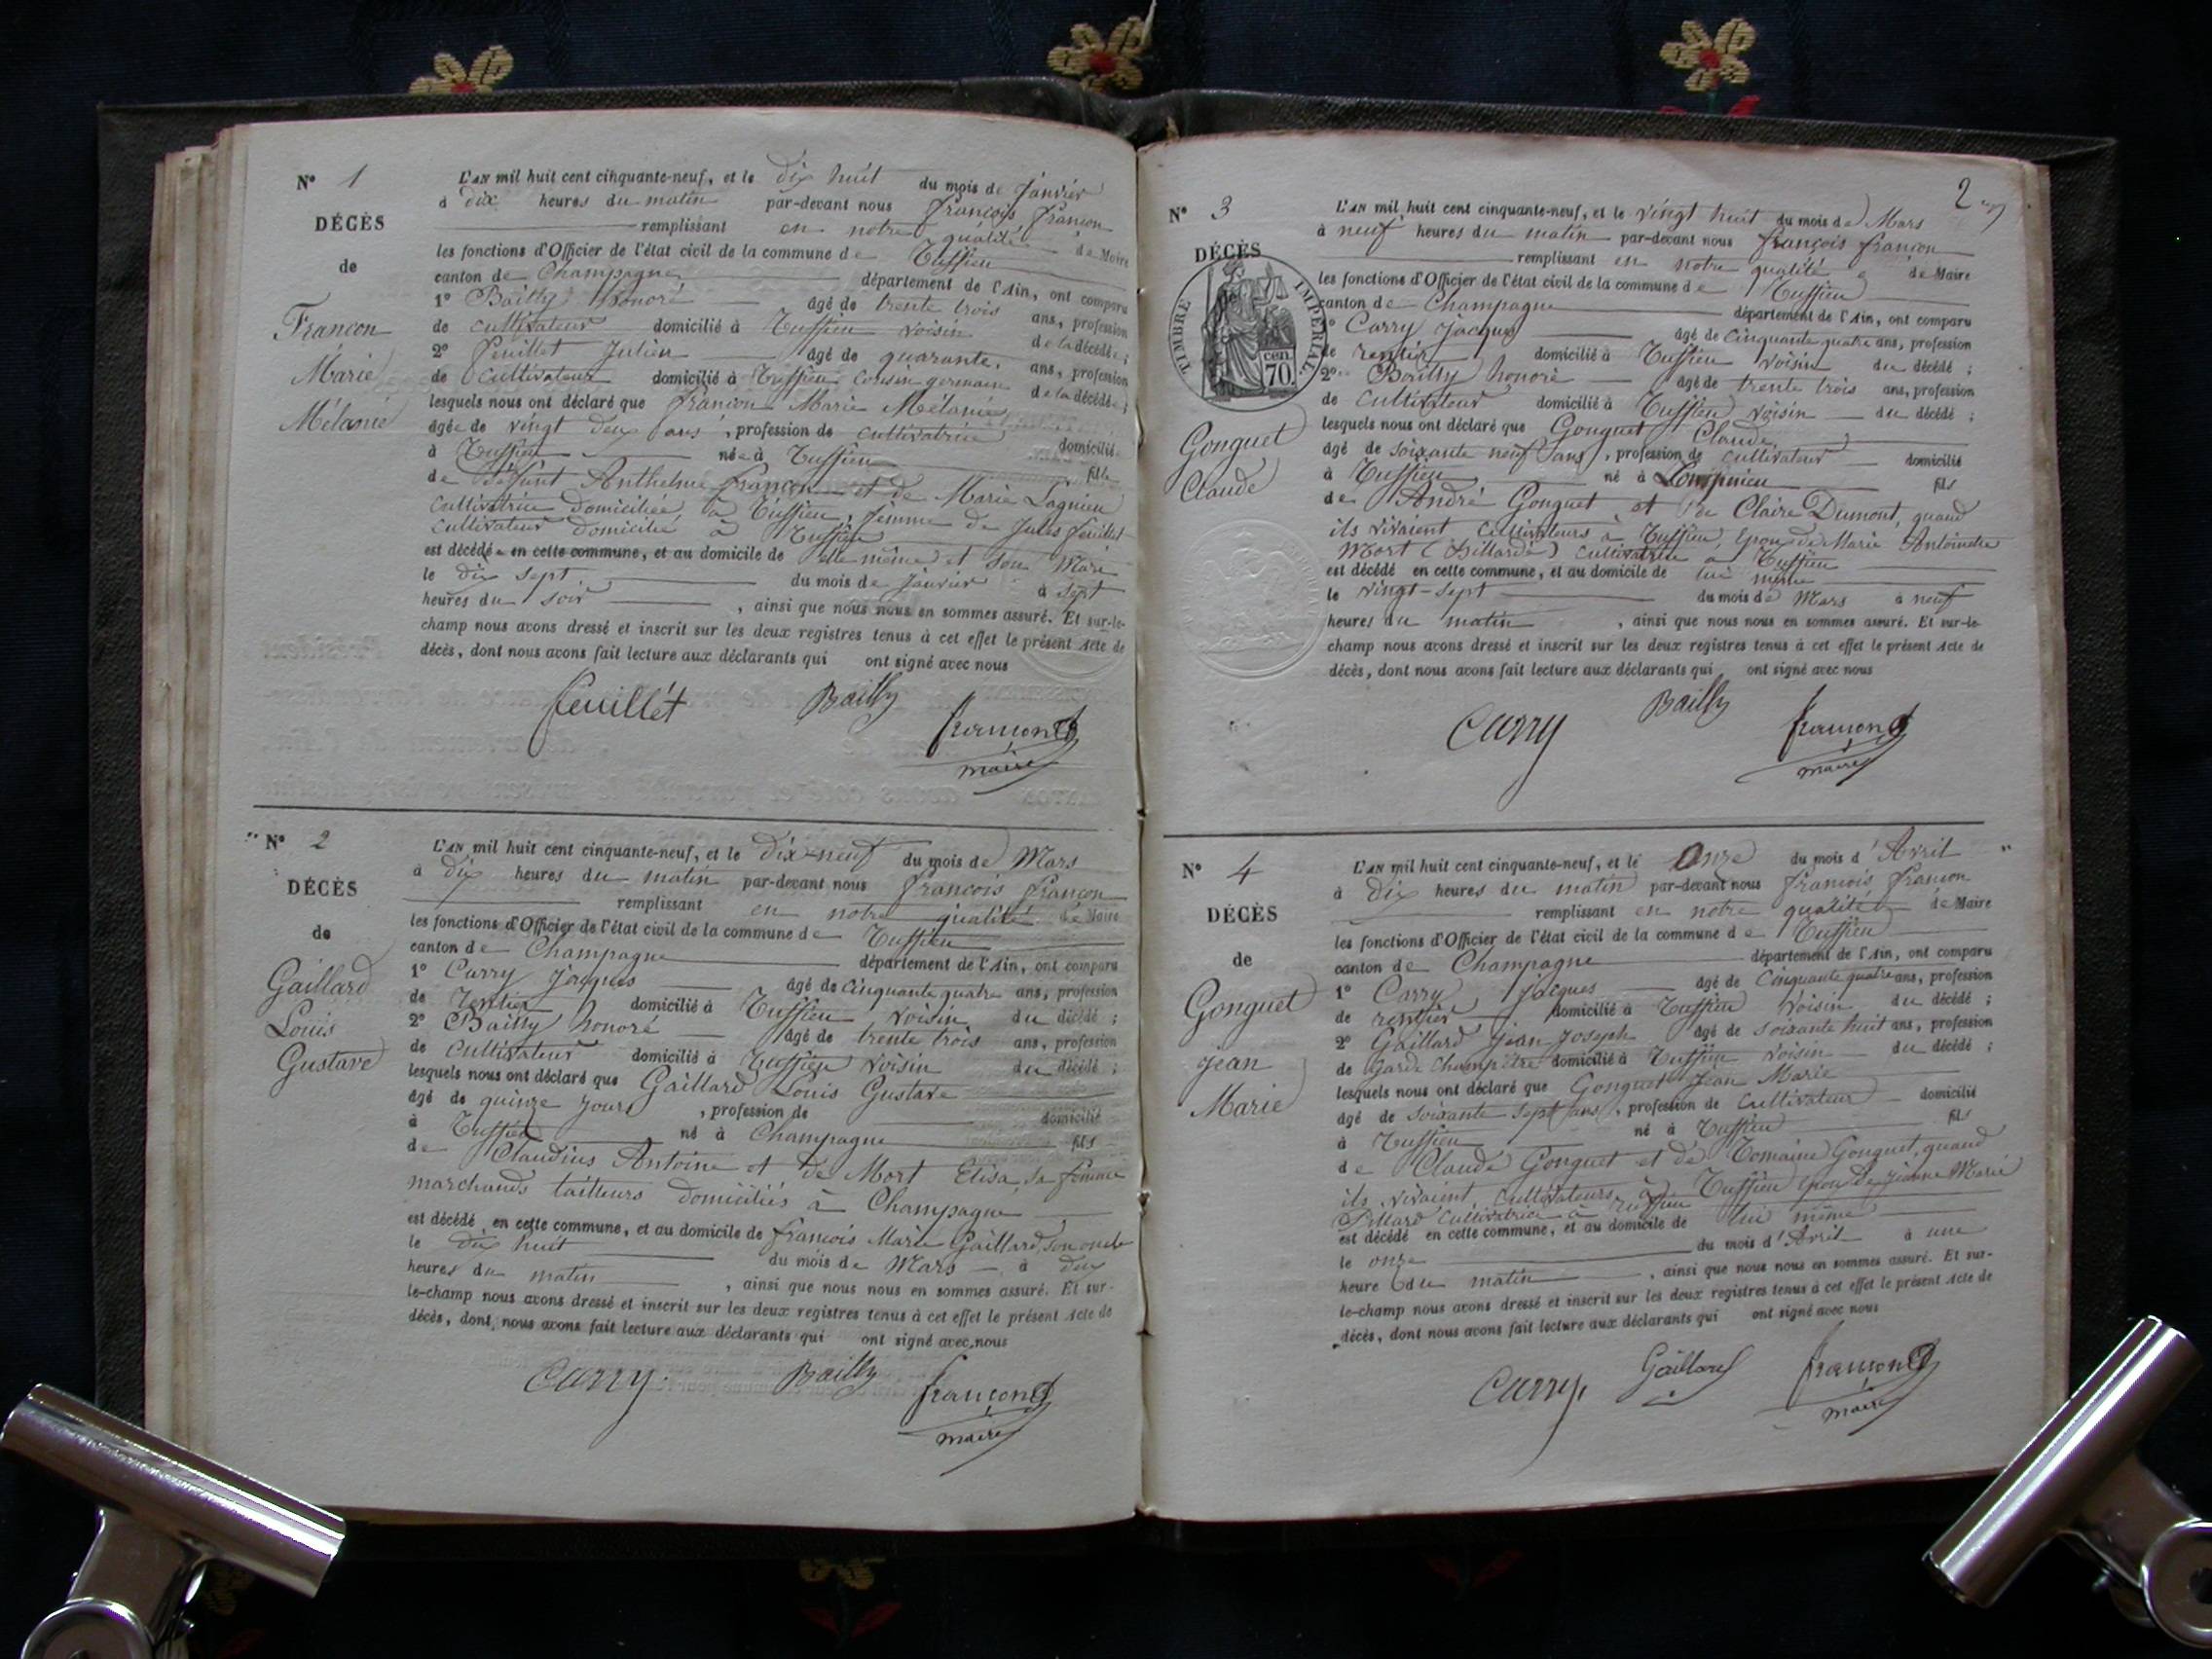 N° 1
DÉCÈS
de
Françon
Marie
Mélanie
L'AN mil huit cent cinquante-neuf, et le dix huit du mois de Janvier
à dix heures du matin par-devant nous françois françon
remplissant en notre qualité de Maire
les fonctions d'Officier de l'état civil de la commune de Tuffieu
canton de Champagne département de l'Ain, ont comparu
1° Bailly honoré âgé de trente trois ans, profession
de cultivateur domicilié à Tuffieu voisin de la décédée ;
2° feuillet Julien âgé de quarante ans, profession
de cultivateur domicilié à Tuffieu cousin germain de la décédée ;
lesquels nous ont déclaré que françon Marie Mélanie
âgée de vingt deux ans, profession de cultivatrice domicilié
à Tuffieu née à Tuffieu fille
de défunt Anthelme françon et de Marie Lagnieu
cultivatrice domiciliée à Tuffieu, femme de Jules feuillet
cultivateur domicilié à Tuffieu
est décédée en cette commune, et au domicile de elle même et son Mari
le dix sept du mois de janvier à sept
heures du soir, ainsi que nous nous en sommes assuré. Et sur-le-
champ nous avons dressé et inscrit sur les deux registres tenus à cet effet le présent Acte de
décès, dont nous avons fait lecture aux déclarants qui ont signé avec nous
feuillét Bailly françon
maire
N° 2
DÉCÈS
de
Gaillard
Louis
Gustave
L'AN mil huit cent cinquante-neuf, et le dix-neuf du mois de Mars
à dix heures du matin par-devant nous françois françon
remplissant en notre qualité de Maire
les fonctions d'Officier de l'état civil de la commune de Tuffieu
canton de Champagne département de l'Ain, ont comparu
1° Carry Jacques âgé de cinquante quatre ans, profession
de rentier domicilié à Tuffieu voisin du décédé ;
2° Bailly honoré âgé de trente trois ans, profession
de cultivateur domicilié à Tuffieu voisin du décédé ;
lesquels nous ont déclaré que Gaillard Louis Gustave
âgé de quinze jours, profession de domicilié
à Tuffieu né à Champagne fils
de Claudius Antoine et de Mort Elisa, sa femme
marchands tailleurs domiciliés à Champagne
est décédé en cette commune, et au domicile de françois Marie Gaillard, son oncle
le dix huit du mois de Mars à dix
heures du matin, ainsi que nous nous en sommes assuré. Et sur-
le-champ nous avons dressé et inscrit sur les deux registres tenus à cet effet le présent Acte de
décès, dont nous avons fait lecture aux déclarants qui ont signé avec nous
Carry. Bailly françon
maire
2
N° 3
DÉCÈS
TIMBRE IMPÉRIAL
cen.
70.
Gonguet
Claude
L'AN mil huit cent cinquante-neuf, et le vingt huit du mois de Mars
à neuf heures du matin par-devant nous françois françon
remplissant en notre qualité de Maire
les fonctions d'Officier de l'état civil de la commune de Tuffieu
canton de Champagne département de l'Ain, ont comparu
1° Carry Jacques âgé de cinquante quatre ans, profession
de rentier domicilié à Tuffieu voisin du décédé ;
2° Bailly honoré âgé de trente trois ans, profession
de cultivateur domicilié à Tuffieu voisin du décédé ;
lesquels nous ont déclaré que Gonguet Claude
âgé de soixante neuf ans, profession de cultivateur domicilié
à Tuffieu né à fils
de André Gonguet et de Claire Dumont, quand
ils vivaient cultivateurs à Tuffieu, époux de Marie Antoinette
Mort cultivatrice à Tuffieu
est décédé en cette commune, et au domicile de lui même
le vingt-sept du mois de Mars à neuf
heures du matin, ainsi que nous nous en sommes assuré. Et sur-le-
champ nous avons dressé et inscrit sur les deux registres tenus à cet effet le présent Acte de
décès, dont nous avons fait lecture aux déclarants qui ont signé avec nous
Carry Bailly françon
maire
N° 4
DÉCÈS
de
Gonguet
Jean
Marie
L'AN mil huit cent cinquante-neuf, et le Onze du mois d'Avril
à dix heures du matin par-devant nous françois françon
remplissant en notre qualité de Maire
les fonctions d'Officier de l'état civil de la commune de Tuffieu
canton de Champagne département de l'Ain, ont comparu
1° Carry Jacques âgé de cinquante quatre ans, profession
de rentier domicilié à Tuffieu voisin du décédé ;
2° Gaillard Jean Joseph âgé de soixante huit ans, profession
de Garde Champêtre domicilié à Tuffieu voisin du décédé ;
lesquels nous ont déclaré que Gonguet Jean Marie
âgé de soixante sept ans, profession de cultivateur domicilié
à Tuffieu né à Tuffieu fils
de Claude Gonguet et de Gonguet, quand
ils vivaient cultivateurs à Tuffieu époux de jeanne Marie
Billard cultivatrice à Tuffieu
est décédé en cette commune, et au domicile de lui même
le onze du mois d'Avril à une
heure du matin, ainsi que nous nous en sommes assuré. Et sur-
le-champ nous avons dressé et inscrit sur les deux registres tenus à cet effet le présent Acte de
décès, dont nous avons fait lecture aux déclarants qui ont signé avec nous
Carry. Gaillard françon
maire